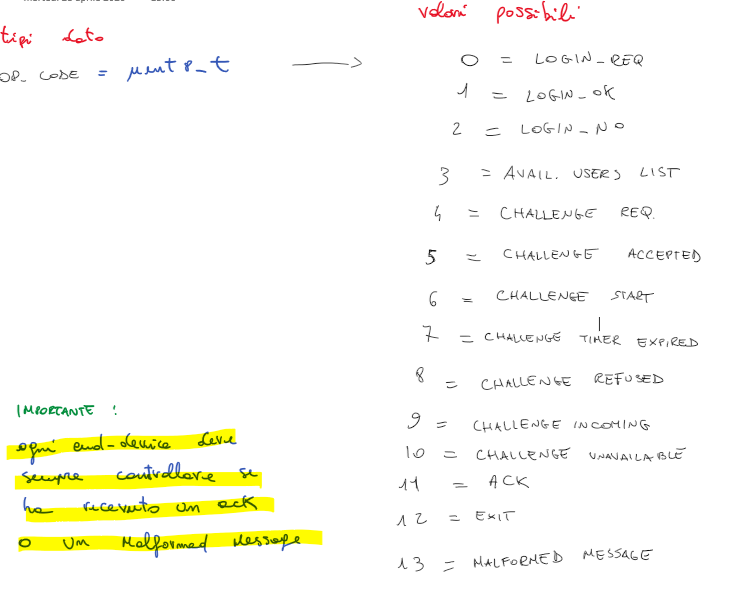 valori possibili
tipi dato
OP_CODE = uint8_t
0 = LOGIN_REQ
1 = LOGIN_OK
2 = LOGIN_NO
3 = AVAIL. USERS LIST
4 = CHALLENGE REQ.
5 = CHALLENGE ACCEPTED
6 = CHALLENGE START
7 = CHALLENGE TIMER EXPIRED
8 = CHALLENGE REFUSED
9 = CHALLENGE INCOMING
10 = CHALLENGE UNAVAILABLE
11 = ACK
12 = EXIT
13 = MALFORMED MESSAGE
IMPORTANTE :
ogni end-device deve
sempre controllare se
ha ricevuto un ack
o un Malformed Message